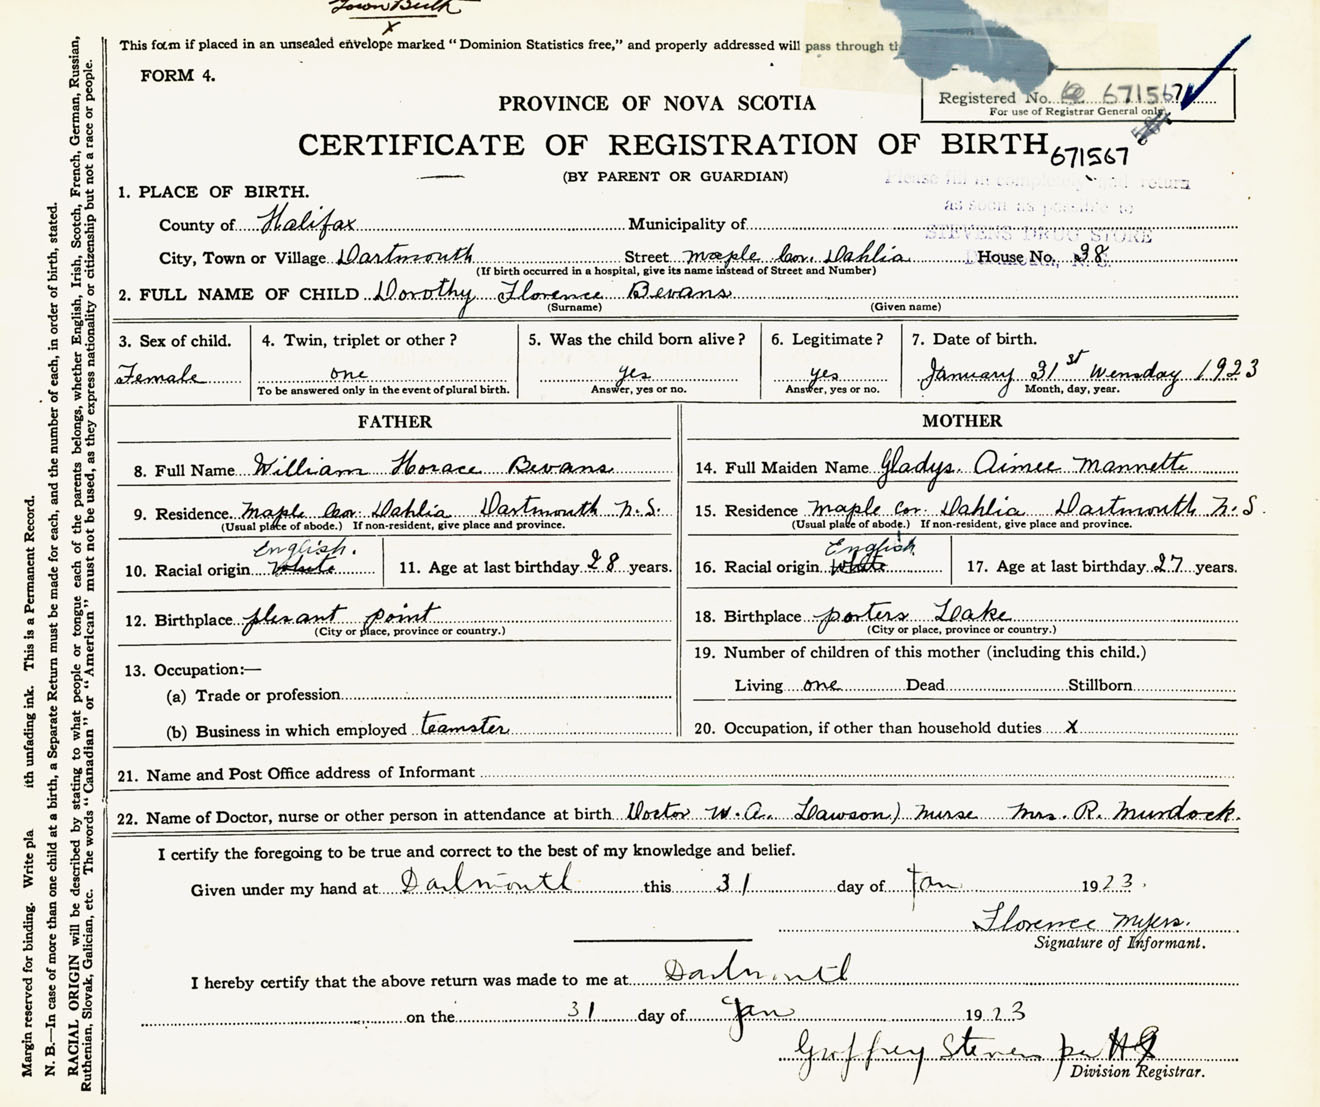 Town Birth
x
This form if placed in an unsealed envelope marked "Dominion Statistics free," and properly addressed will pass through th
FORM 4.
Registered No. 671567
For use of Registrar General only
PROVINCE OF NOVA SCOTIA
CERTIFICATE OF REGISTRATION OF BIRTH
671567
(BY PARENT OR GUARDIAN)
Please fill in completely and return
as soon as possible to
STEVENS DRUG STORE
1. PLACE OF BIRTH.
County of Halifax Municipality of
City, Town or Village Dartmouth Street maple Cor. Dahlia House No. 38
(If birth occurred in a hospital, give its name instead of Street and Number)
2. FULL NAME OF CHILD Dorothy Florence Bevans
(Surname) (Given name)
3. Sex of child. 4. Twin, triplet or other? 5. Was the child born alive? 6. Legitimate? 7. Date of birth.
Female one yes yes January 31st Wensday 1923
To be answered only in the event of plural birth. Answer, yes or no. Answer, yes or no. Month, day, year.
FATHER
8. Full Name William Horace Bevans
9. Residence. Maple Cor. Dahlia Dartmouth N.S.
(Usual place of abode.) If non-resident, give place and province.
English.
10. Racial origin White 11. Age at last birthday 28 years.
12. Birthplace plesant point
(City or place, province or country.)
13. Occupation:—
(a) Trade or profession
(b) Business in which employed teamster
MOTHER
14. Full Maiden Name Gladys. Aimee Mannette
15. Residence maple cor. Dahlia Dartmouth N.S.
(Usual place of abode.) If non-resident, give place and province.
English
16. Racial origin White 17. Age at last birthday 27 years.
18. Birthplace porters Lake
(City or place, province or country.)
19. Number of children of this mother (including this child.)
Living one Dead Stillborn
20. Occupation, if other than household duties x
21. Name and Post Office address of Informant
22. Name of Doctor, nurse or other person in attendance at birth Doctor W. A. Lawson) nurse Mrs. R. Murdock.
I certify the foregoing to be true and correct to the best of my knowledge and belief.
Given under my hand at Dartmouth this 31 day of Jan 1923.
Florence Myers.
Signature of Informant.
I hereby certify that the above return was made to me at Dartmouth
on the 31 day of Jan 1923
Geoffrey Stevens per
Division Registrar.
Margin reserved for binding. Write pla ith unfading ink. This is a Permanent Record.
N. B.—In case of more than one child at a birth, a Separate Return must be made for each, and the number of each, in order of birth, stated.
RACIAL ORIGIN will be described by stating to what people or tongue each of the parents belongs, whether English, Irish, Scotch, French, German, Russian,
Ruthenian, Slovak, Galician, etc. The words "Canadian" or "American" must not be used, as they express nationality or citizenship but not a race or people.